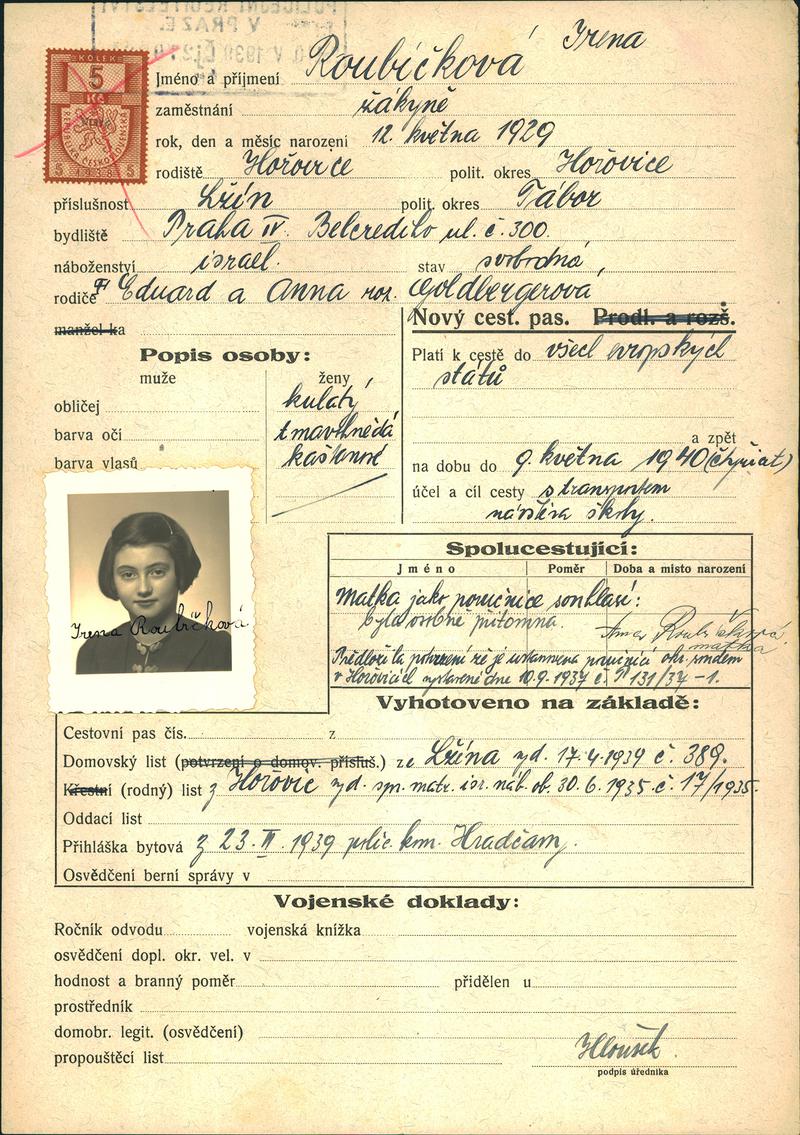 POLICEJNÍ ŘEDITELSTVÍ
V PRAZE.
KOLEK
5
Kč
REPUBLIKA ČESKOSLOVENSKÁ
5 1938 5
Irena
Jméno a příjmení Roubíčková
zaměstnání žákyně
rok, den a měsíc narození 12. května 1929
rodiště Hořovice polit. okres Hořovice
příslušnost Lžín polit. okres Tábor
bydliště Praha IV. Belcrediho ul. č. 300.
náboženství israel. stav svobodná
rodiče Eduard a Anna roz. Goldbergerová
manžel-ka
Nový cest. pas. Prodl. a rozš.
Popis osoby:
muže ženy
obličej kulatý
barva očí tmavohnědá
barva vlasů kaštanové
Platí k cestě do všech evropských
států
a zpět
na dobu do 9. května 1940 (čtyřicet)
účel a cíl cesty s transportem
návštěva školy.
Irena Roubíčková
Spolucestující:
Jméno Poměr Doba a místo narození
Matka jako poručnice souhlasí:
byla osobně přítomna.
Anna Roubíčková
matka
Předložila potvrzení že je ustanovena poručnicí okr. soudem
v Hořovicích vystavené dne 10.9.1937 č. P 131/37 -1.
Vyhotoveno na základě:
Cestovní pas čís. z
Domovský list (potvrzení o domov. přísluš.) ze Lžína vyd. 17.4.1939 č. 389.
Křestní (rodný) list z Hořovic vyd. spr. matr. isr. náb. ob. 30.6.1935 č. 17/1935.
Oddací list
Přihláška bytová z 23. II. 1939 polic. kom. Hradčany.
Osvědčení berní správy v
Vojenské doklady:
Ročník odvodu vojenská knížka
osvědčení dopl. okr. vel. v
hodnost a branný poměr přidělen u
prostředník
domobr. legit. (osvědčení)
propouštěcí list
Hloušek
podpis úředníka